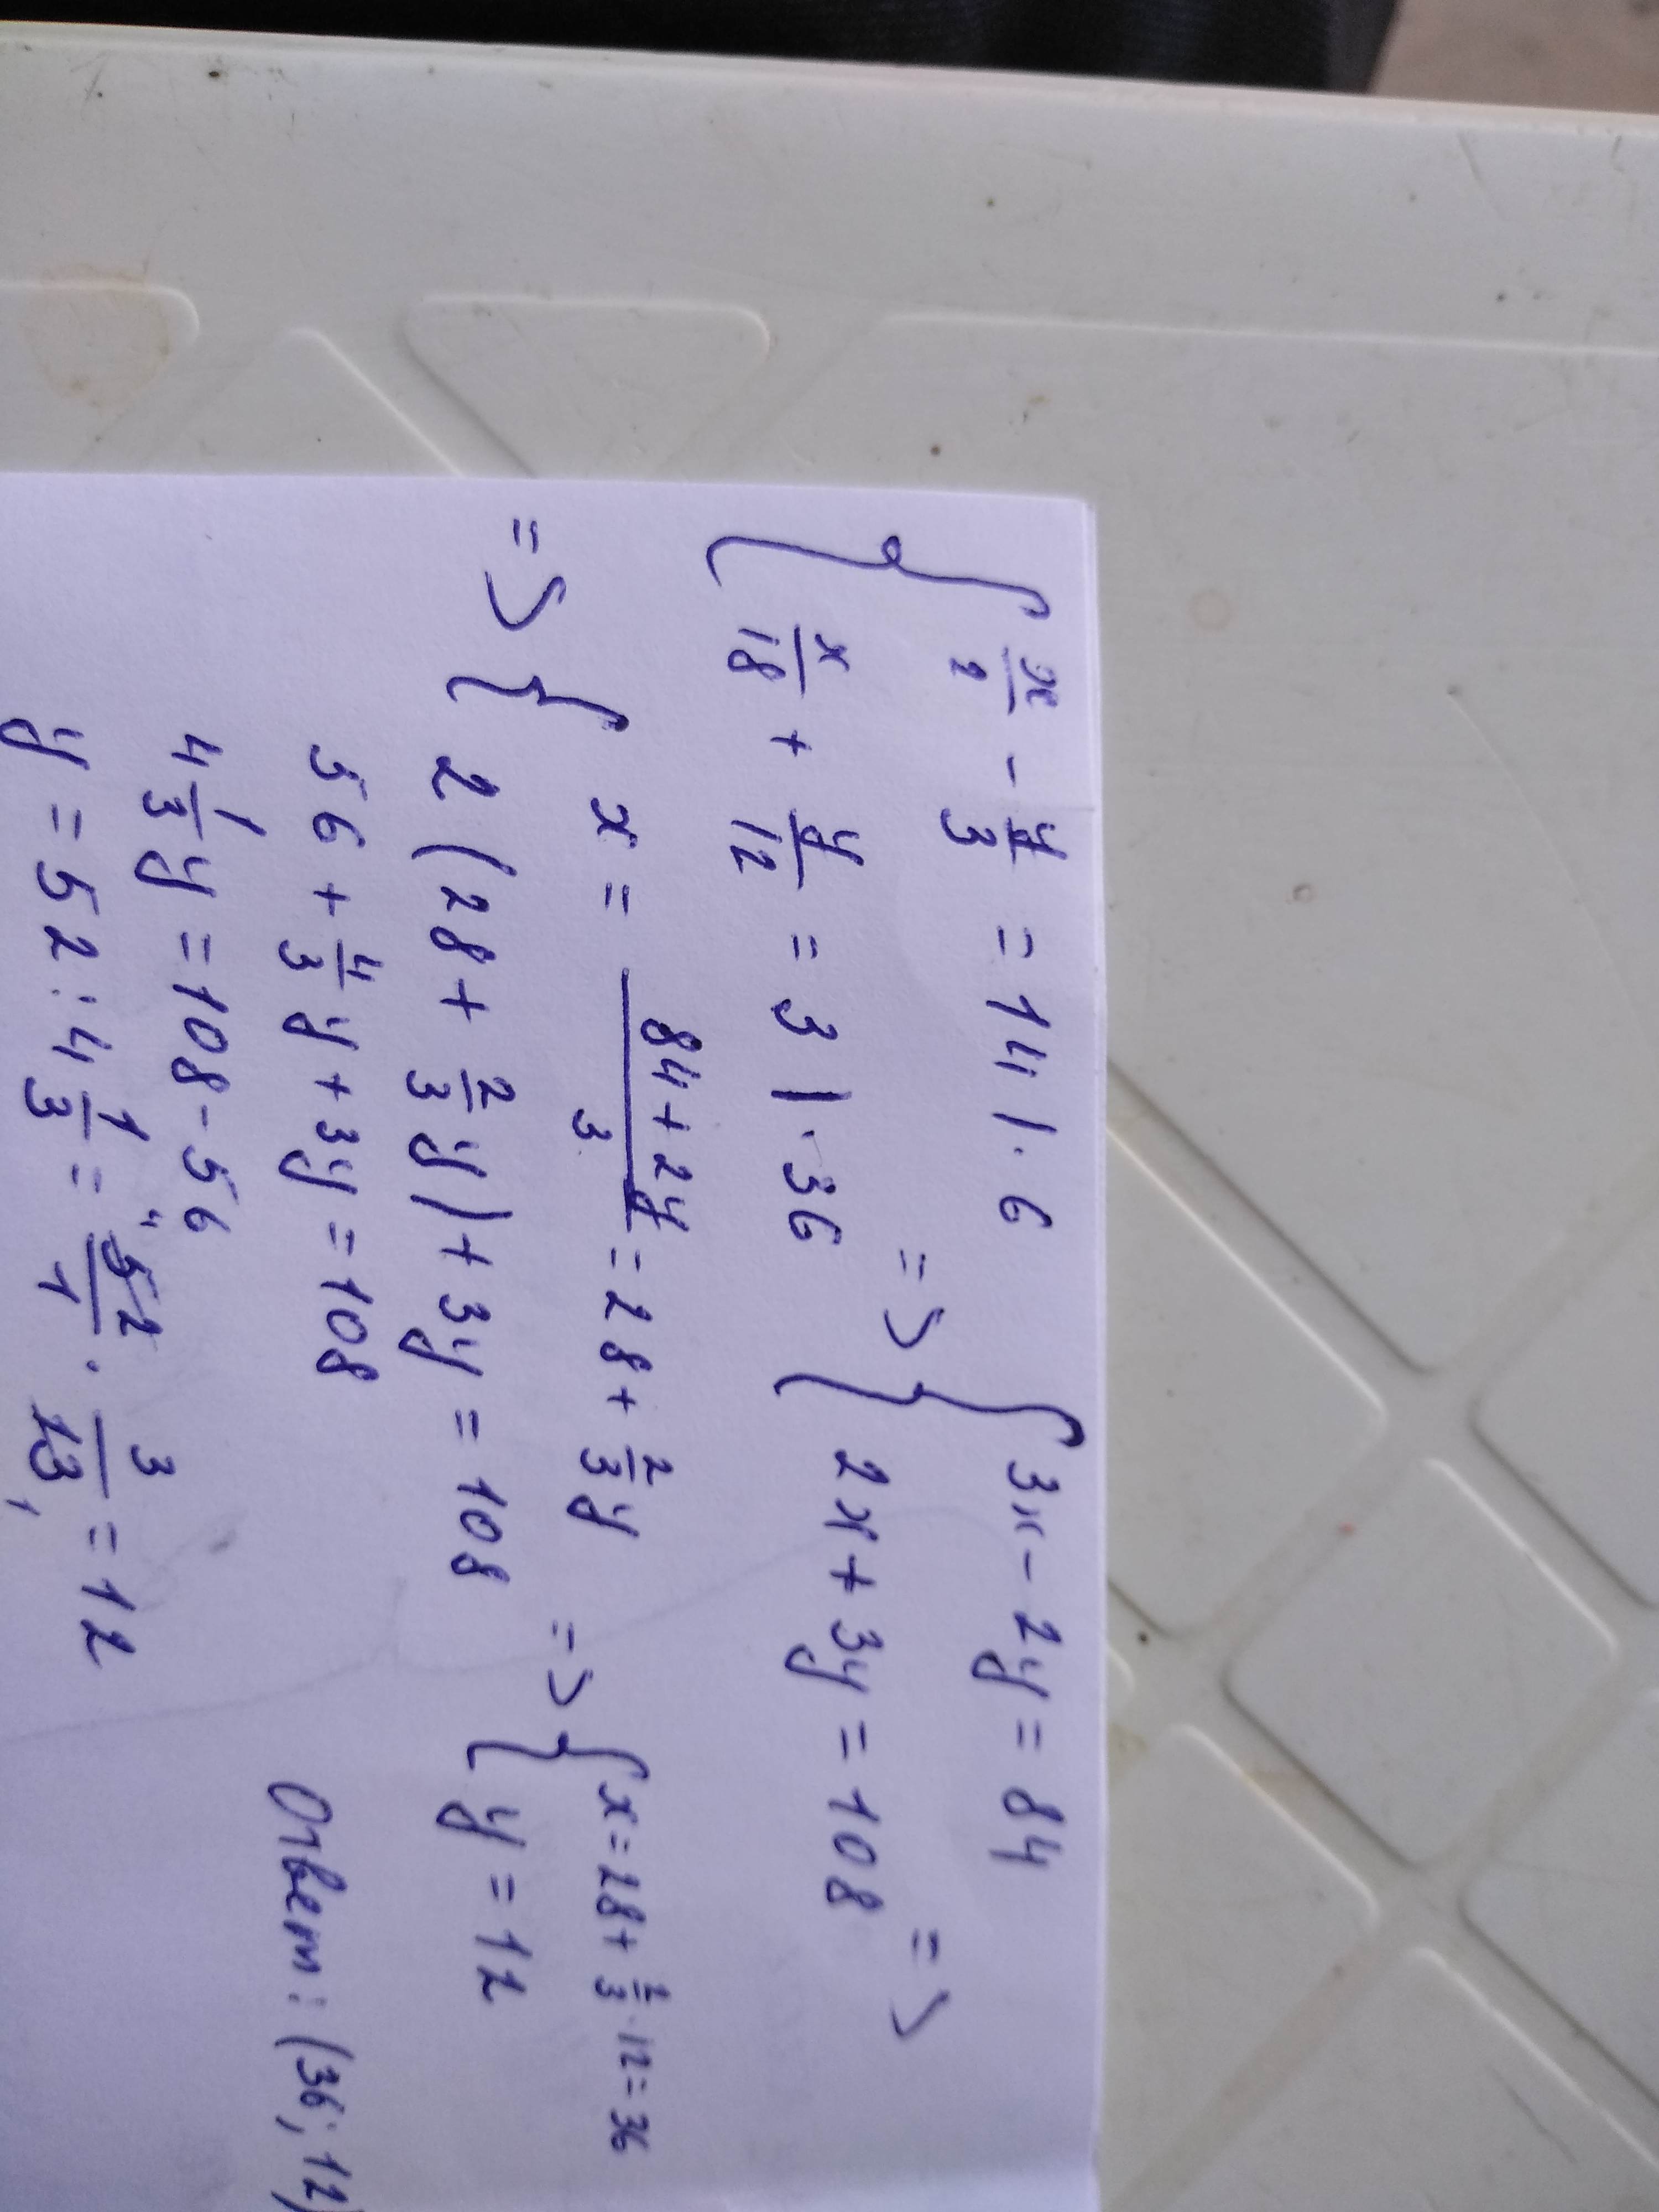 { x/2 - y/3 = 14 | · 6
{ x/18 + y/12 = 3 | · 36
=> { 3x - 2y = 84
{ 2x + 3y = 108 =>
=> { x = (84 + 2y)/3 = 28 + 2/3 y
{ 2 (28 + 2/3 y) + 3y = 108
=> { x = 28 + 2/3 · 12 = 36
{ y = 12
56 + 4/3 y + 3y = 108
4 1/3 y = 108 - 56
y = 52 : 4 1/3 = 52/1 · 3/13 = 12
Ответ: (36; 12)